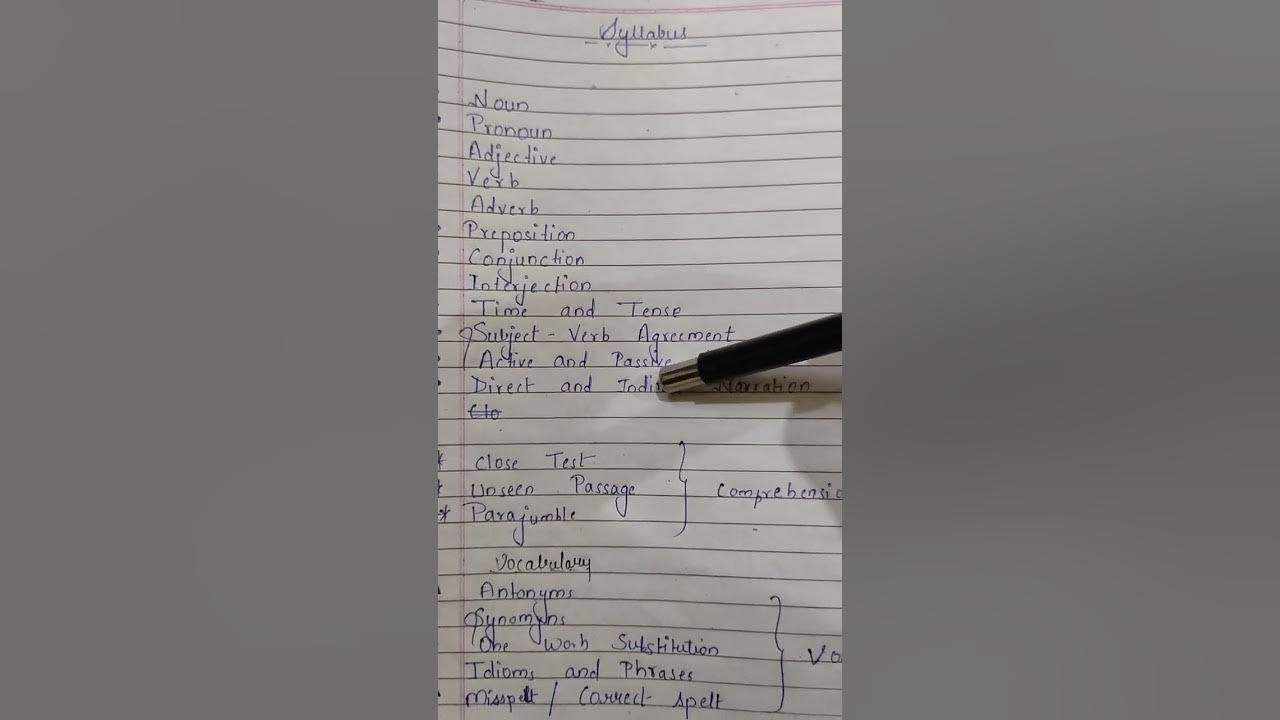 Syllabus
Noun
Pronoun
Adjective
Verb
Adverb
Preposition
Conjunction
Interjection
Time and Tense
Subject - Verb Agreement
Active and Passive
Direct and Indi Narration
Clo
Close Test
Unseen Passage
Comprehensio
Parajumble
Vocabulary
Antonyms
Synomyns
One Worh Substitution
Vo
Idioms and Phrases
Misspelt / Correct Spelt